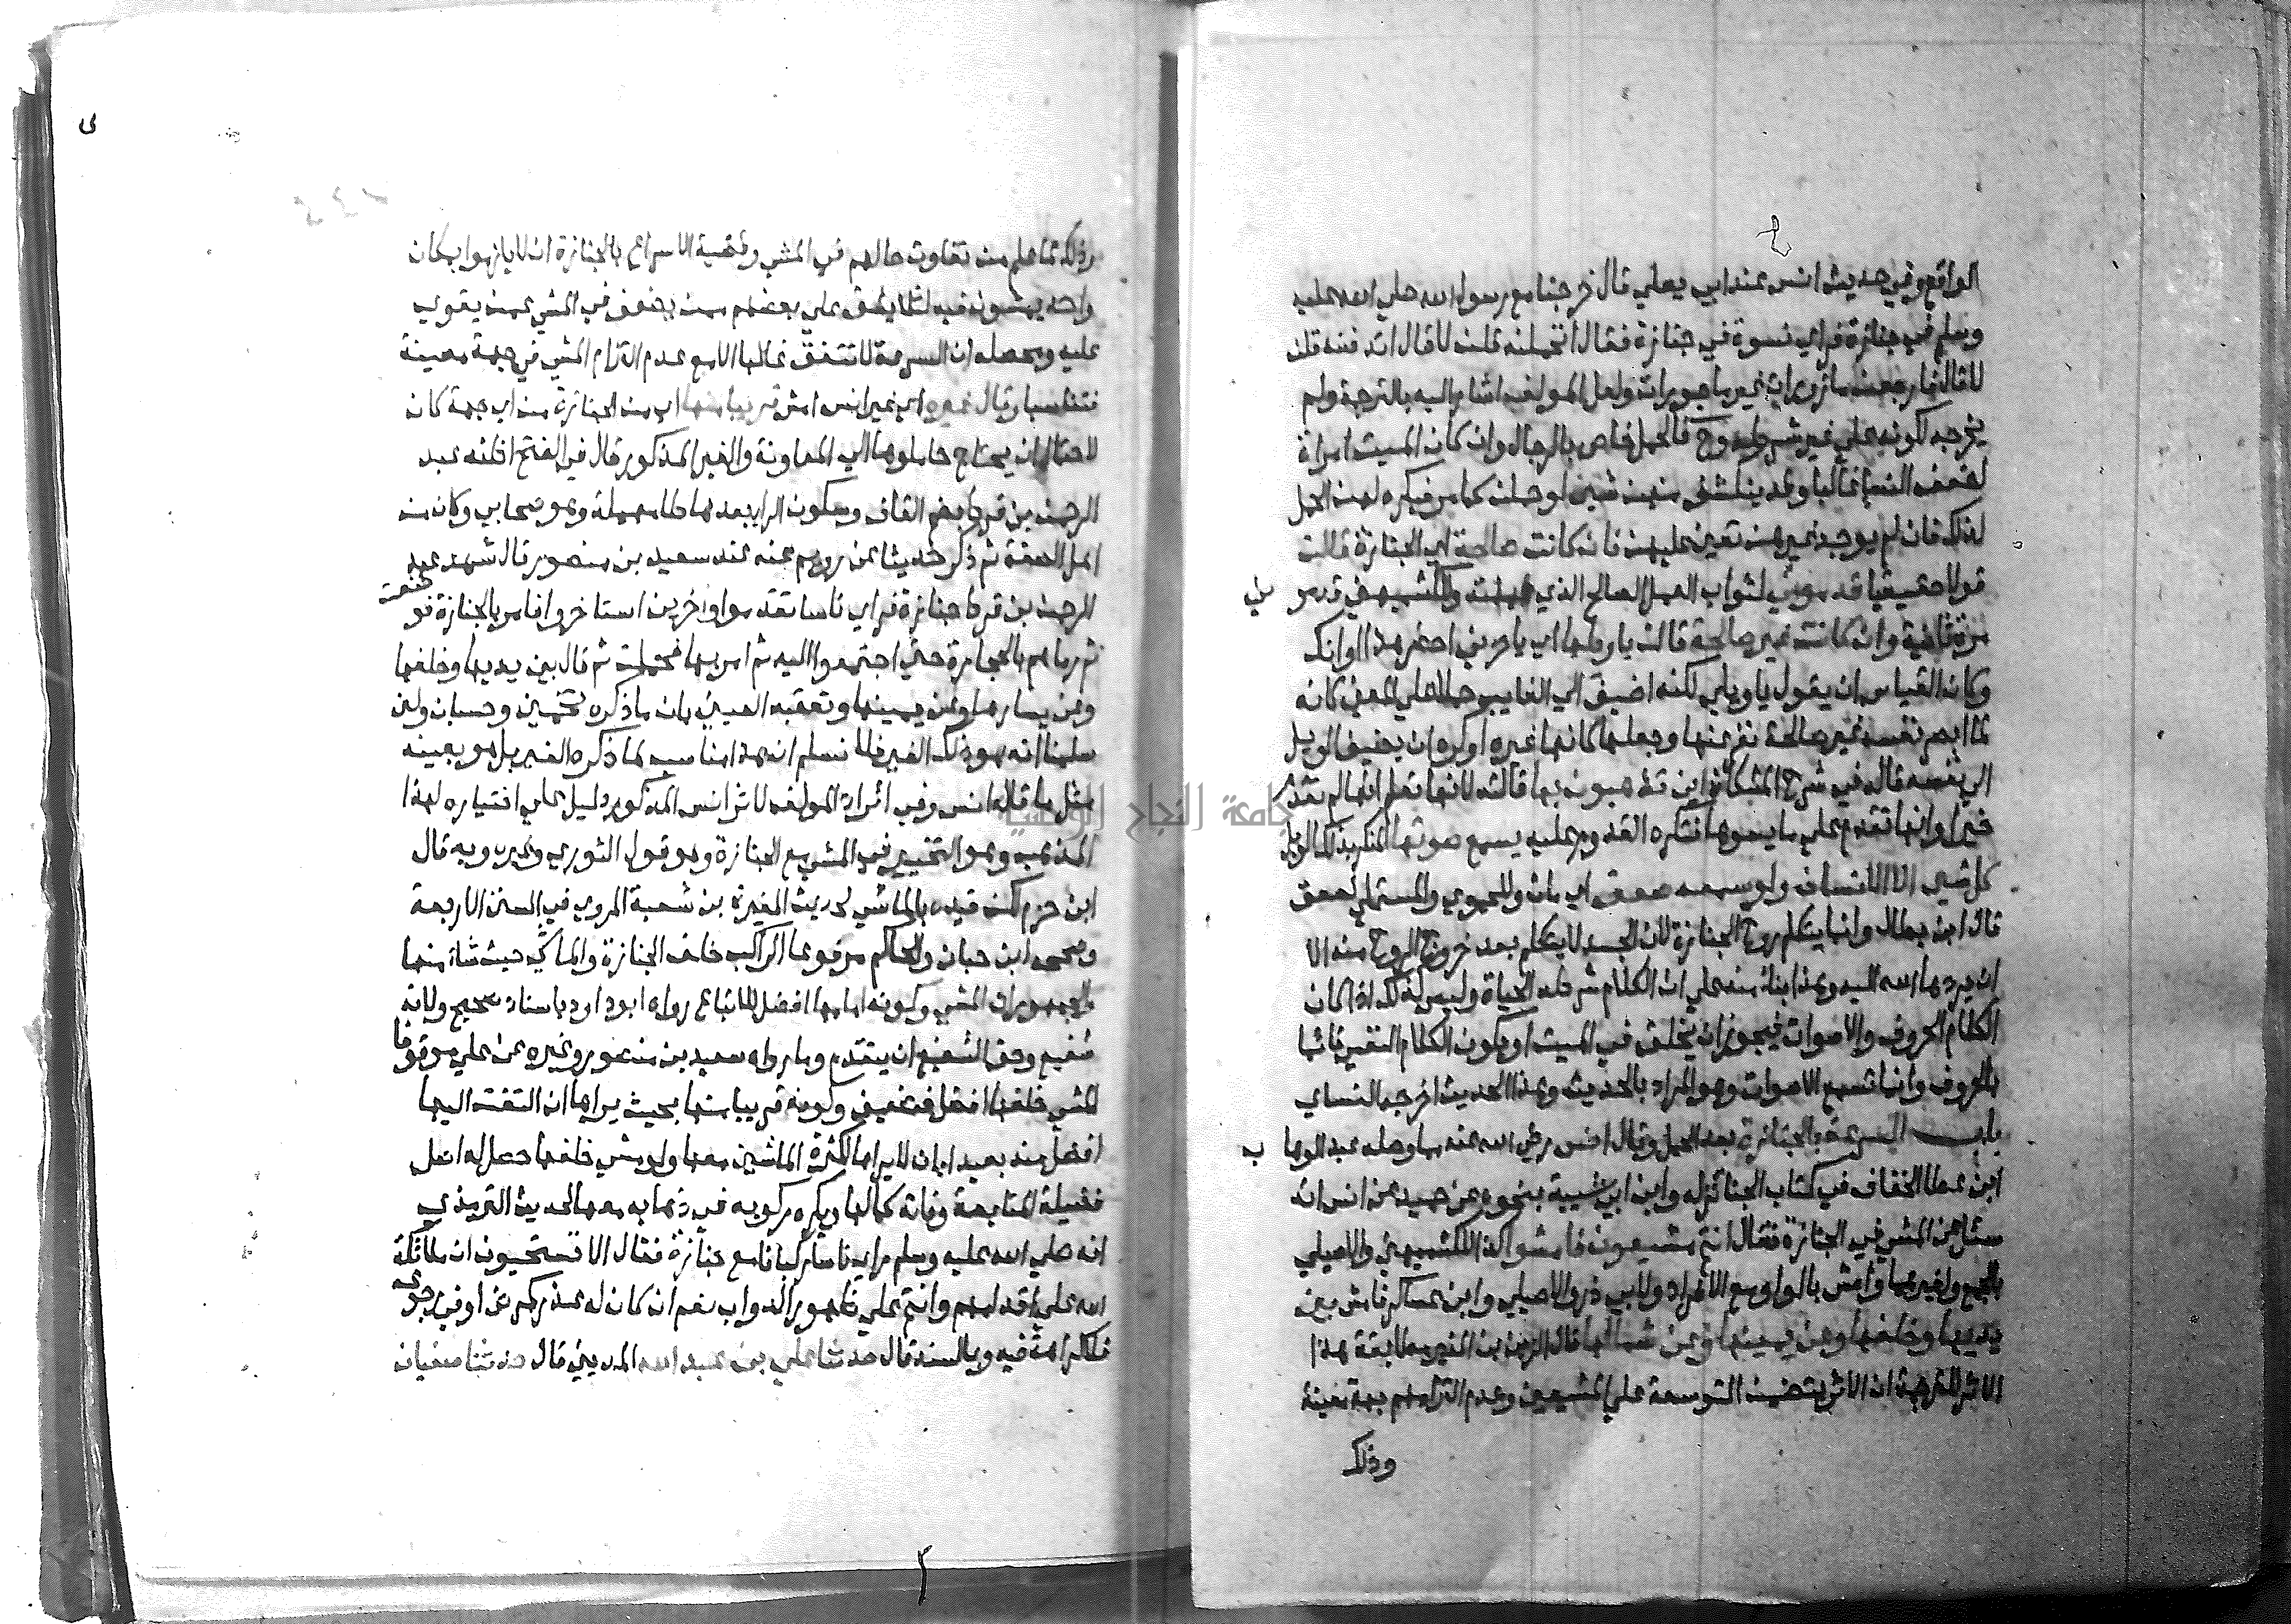 الواقع وفي حديث انس عند ابي يعلي قال خرجنا مع رسول الله صلي الله عليه
وسلم في جنازة فراي نسوة في جنازة فقال اتحملنه قلن لا قال اتدفنه قلن
لا قال فارجعن مازورات غير ماجورات ولعل المولف اشار اليه بالترجمة ولم
يخرجه لكونه علي غير شرطه وح فالحمل خاص بالرجال وان كان الميت امراة
لضعف النسا غالبا وقد ينكشف منهن شي لو حملن كما مر فيكره لهن الحمل
لذلك فان لم يوجد غيرهن تعين عليهن فان كانت صالحة اي الجنازة قالت
قولا حقيقيا قدموني لثواب العمل الصالح الذي عملته وللكشميهني قدموني
مرة ثانية وان كانت غير صالحة قالت ياويلها اي ياحزني احضر هذا اوانك
وكان القياس ان يقول ياويلي لكنه اضيف الي الغايب حملا علي المعني كانه
لما ابصر نفسه غير صالحة نفر عنها وجعلها كانها غيره او كره ان يضيف الويل
الي نفسه قاله في شرح المشكاة اين تذهبون بها قالته لانها تعلم انها لم تقدم
خيرا وانها تقدم علي ما يسوها فتكره القدوم عليه يسمع صوتها المنكر بذلك الويل
كل شي الا الانسان ولو سمعه صعق اي مات وللحموي والمستملي لصعق
قال ابن بطال وانما يتكلم روح الجنازة لان الجسد لا يتكلم بعد خروج الروح منه الا
ان يردها الله اليه وهذا بناء منه علي ان الكلام شرطه الحياة وليس كذلك اذا كان
الكلام الحروف والاصوات فيجوز ان يخلق في الميت او يكون الكلام النفسي قائما
بالروف وانما تسمع الاصوات وهو المراد بالحديث وهذا الحديث اخرجه النساي
باب السرعة بالجنازة بعد الحمل وقال انس رضي الله عنه مما وصله عبد الوهاب
ابن عطا الخفاف في كتاب الجنائز له وابن ابي شيبة بنحوه عن حميد عن انس انه
سئل عن المشي في الجنازة فقال انتم مشيعون فامشوا كذا للكشميهني والاصيلي
بالجمع ولغيرهما وامش بالواو مع الافراد ولابي ذر والاصيلي وابن عساكر فامش بين
يديها وخلفها وعن يمينها وعن شمالها قال الزين بن المنير مطابقة هذا
الاثر للترجمة ان الاثر يتضمن التوسعة علي المشيعين وعدم التزامهم بجهة معينة
وذلك
وذلك لما علم من تفاوت حالهم في المشي وقضية الاسراع بالجنازة ان لا يلزموا بمكان
واحد يمشون فيه لئلا يشق علي بعضهم ممن يضعف في المشي عمن يقوي
عليه ومحصله ان السرعة لا تتفق غالبا الا مع عدم التزام المشي في جهة معينة
فتناسبا وقال غيره اي غير انس امش قريبا منها اي من الجنازة من اي جهة كان
لاحتمال ان يحتاج حاملوها الي المعاونة والغير المذكور قال في الفتح اظنه عبد
الرحمن بن قرط بضم القاف وسكون الرا بعدها طا مهملة وهو صحابي وكان من
اهل الصفة ثم ذكر حديثا عن رويم عنه عند سعيد بن منصور قال شهد عبد
الرحمن بن قرط جنازة فراي ناسا تقدموا واخرين استاخروا فامر بالجنازة فوضعت
ثم رماهم بالحجارة حتي اجتمعوا اليه ثم امر بها فحملت ثم قال بين يديها وخلفها
وعن يسارها وعن يمينها وتعقبه العيني بان ما ذكره تخمين وحسبان ولئن
سلمنا انه هو ذلك الغير فلا نسلم ان هذا مناسب لما ذكره الغير بل هو بعينه
مثل ما قاله انس وفي ايراد المولف لاثر انس المذكور دليل علي اختياره لهذا
المذهب وهو التخيير في المشي مع الجنازة وهو قول الثوري وغيره وبه قال
ابن حزم لكن قيده بالماشي لحديث المغيرة بن شعبة المروي في السنن الاربعة
وصححه ابن حبان والحاكم مرفوعا الراكب خلف الجنازة والماشي حيث شاء منها
والجمهور ان المشي وكونه امامها افضل للاتباع رواه ابو داود باسناد صحيح ولانه
شفيع وحق الشفيع ان يتقدم وما رواه سعيد بن منصور وغيره عن علي موقوفا
المشي خلفها افضل فضعيف وكونه قريبا منها بحيث يراها ان التفت اليها
افضل منه بعيدا بان لا يراها لكثرة الماشين معها ولو مشي خلفها حصل له اصل
فضيلة المتابعة وفاته كمالها ويكره ركوبه في ذهابه معها لحديث الترمذي
انه صلي الله عليه وسلم راي ناسا ركبانا مع جنازة فقال الا تستحيون ان ملائكة
الله علي اقدامهم وانتم علي ظهور الدواب نعم ان كان له عذر كمرض او في رجوعه
فلا كراهة فيه وبالسند قال حدثنا علي بن عبد الله المديني قال حدثنا سفيان
جامعة النجاح الوطنية